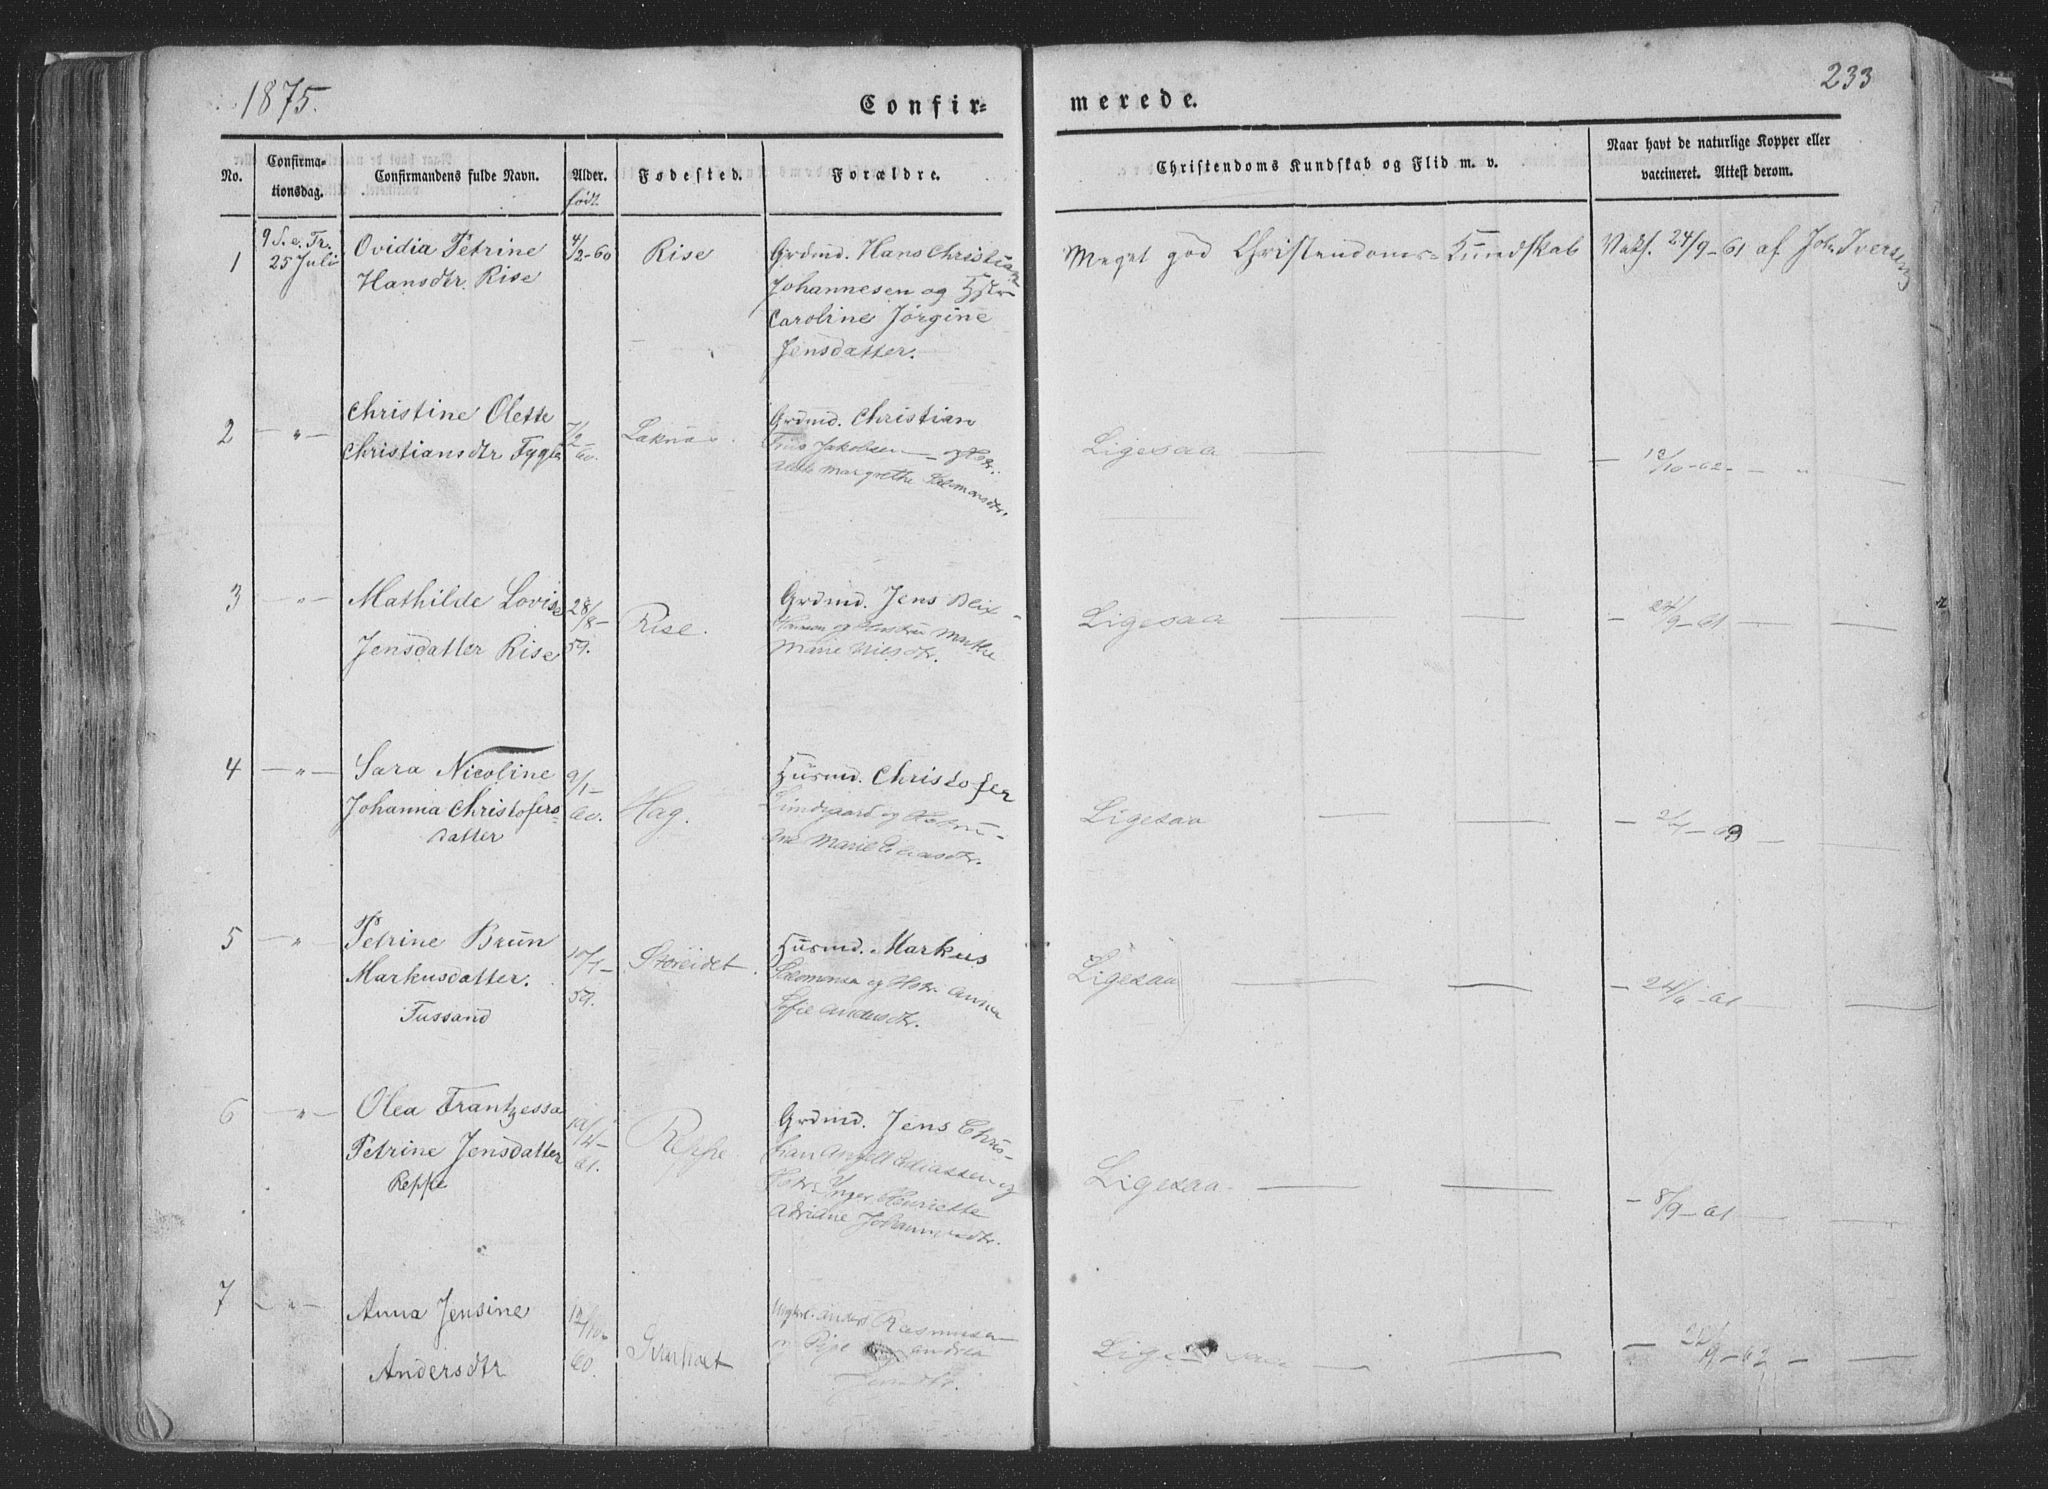 1875.
233
Confir=
merede.
No.
Confirma-
tionsdag.
Confirmandens fulde Navn.
Alder.
født.
Fødested.
Forældre.
Christendoms Kundskab og Flid m. v.
Naar havt de naturlige Kopper eller
vaccineret. Attest derom.
1
9 S. e. Tr.
25 Juli
Ovidia Petrine
Hansdtr. Rise
4/2-60
Rise
Grdmd. Hans Christian
Johannesen og Hstr
Caroline Jørgine
Jensdatter.
Meget god Christendoms-Kundskab
Vakf. 24/9-61 af Joh. Iversen
2
— " —
Christine Olette
Christiansdtr
7/2-
60.
Laknæs.
Grdmd. Christian
Jakobsen og Hstr.
Margrethe
Ligesaa
— 12/10-62 — "
3
— " —
Mathilde Lovise
Jensdatter Rise
28/8-
59.
Rise.
Grdmd. Jens Blix
Hansen og Hustru Marthe
Marie Nilsdtr.
Ligesaa — — — —
24/9-61 — — —
4
— " —
Sara Nicoline
Johanna Christofers-
datter
9/1-
60.
Hag.
Husmd. Christofer
Lundgaard og Hstru
Ane Marie Eliasdtr.
Ligesaa — — —
— 2/7-63 — —
5
— " —
Petrine Brun
Markusdatter.
Tussand
10/7-
59.
Storeidet.
Husmd. Markus
Salomonsen og Hstr. Anna
Sofie Andersdtr.
Ligesaa — — —
— 24/9-61 — —
6
— " —
Olea Frantzessa
Petrine Jensdatter
Reppe
12/4-
61.
Reppe.
Grdmd. Jens Chris-
tian Angell Eliassen og
Hstr. Inger Henriette
Adriane Johannesdtr.
Ligesaa. — — —
— 8/9-61 — — —
7
— " —
Anna Jensine
Andersdtr
12/10-
60.
Ungkrl. Anders Rasmussen
og Pige Andrea
Jensdtr.
Ligesaa — —
— 9-62 — —